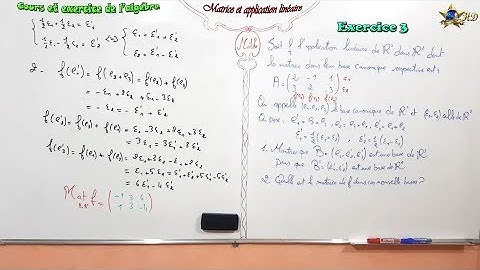 Cours et exercice de l'algèbre
Matrices et application linéaire
Exercice 3
{ 1/2 ε₁ + 1/2 ε₂ = ε'₁
{ 1/2 ε₁ - 1/2 ε₂ = ε'₂
⟺
{ ε₁ = ε'₁ + ε'₂
{ ε₂ = ε'₁ - ε'₂
2. f(e'₁) = f(e₂ + e₃) = f(e₂) + f(e₃)
= -ε₁ + 2ε₂ + ε₁ - 3ε₂
= -ε₂ = -ε'₁ + ε'₂
f(e'₂) = f(e₃) + f(e₁) = ε₁ - 3ε₂ + 2ε₁ + 3ε₂
= 3ε₁ = 3ε'₁ + 3ε'₂
f(e'₃) = f(e₁) + f(e₂) = 2ε₁ + 3ε₂ - ε₁ + 2ε₂
= ε₁ + 5ε₂ = ε'₁ + ε'₂ + 5ε'₁ - 5ε'₂
= 6ε'₁ - 4ε'₂
Mat f = ( -1 3 6
1 3 -4 )
Soit f l'application linéaire de R³ dans R² dont
la matrice dans leur base canonique respective est :
A = ( 2 -1 1
3 2 -3 )
f(e₁) f(e₂) f(e₃)
On appelle (e₁, e₂, e₃) la base canonique de R³ et (ε₁, ε₂) celle de R²
On pose : e'₁ = e₂ + e₃, e'₂ = e₃ + e₁, e'₃ = e₁ + e₂
ε'₁ = 1/2 (ε₁ + ε₂) et ε'₂ = 1/2 (ε₁ - ε₂)
1. Montrer que B' = (e'₁, e'₂, e'₃) est une base de R³
puis que B' = (ε'₁, ε'₂) est une base de R²
2. Quelle est la matrice de f dans ces nouvelles bases ?